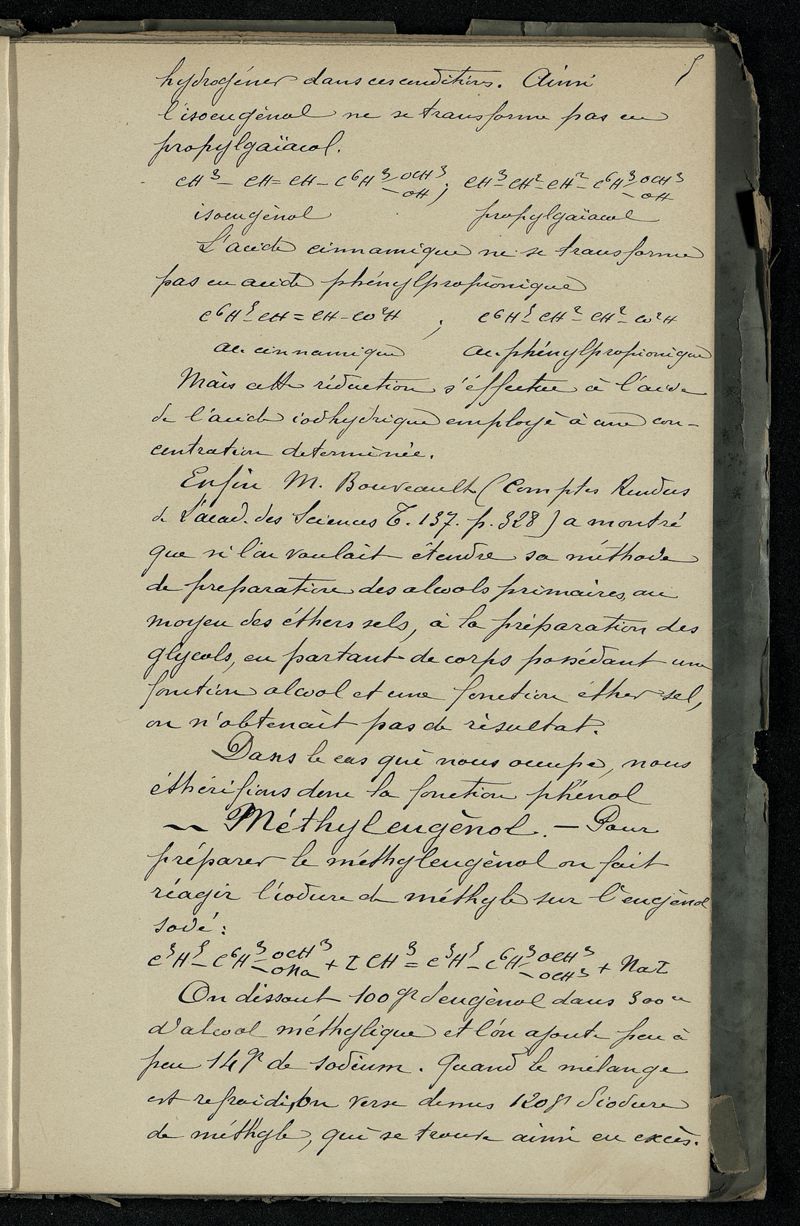 5
hydrogéner dans ces conditions. Ainsi
l'isoeugénol ne se transforme pas en
propylgaïacol.
CH³ – CH = CH – C⁶H³ – OCH³ – OH ; CH³ – CH² – CH² – C⁶H³ – OCH³ – OH
isoeugénol propylgaïacol
L'acide cinnamique ne se transforme
pas en acide phénylpropionique
C⁶H⁵ – CH = CH – CO²H ; C⁶H⁵ – CH² – CH² – CO²H
ac. cinnamique ac phénylpropionique
Mais cette réduction s'effectue à l'aide
de l'acide iodhydrique employé à une con–
centration determinée.
Enfin M. Bouveault (Comptes Rendus
de L'acad. des Sciences T. 137. p. 328) a montré
que si l'on voulait étendre sa méthode
de preparation des alcools primaires, au
moyen des éthers sels, à la préparation des
glycols, en partant de corps possédant une
fonction alcool et une fonction éther sel,
on n'obtenait pas de résultat.
Dans le cas qui nous occupe, nous
éthérifions donc la fonction phénol
~ Méthyleugénol. – Pour
préparer le méthyleugénol on fait
réagir l'iodure de méthyle sur l'eugénol
sodé :
C³H⁵ – C⁶H³ – OCH³ – ONa + I CH³ = C³H⁵ – C⁶H³ – OCH³ – OCH³ + NaI
On dissout 100 gr d'eugénol dans 300 cc
d'alcool méthylique et l'on ajoute peu à
peu 14 gr de sodium. Quand le mélange
est refroidi, on verse dessus 120 gr d'iodure
de méthyle, qui se trouve ainsi en excès.